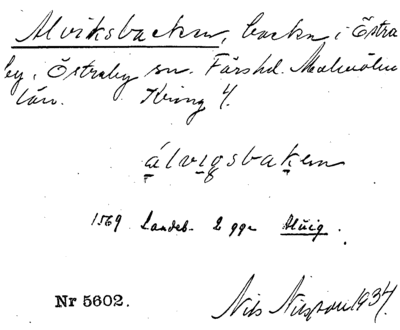 Alviksbacken, backe i Östra
by, Östraby sn. Färs hd. Malmöhus
län. Kring 4.
álvıgsbakem
1569 Landeb. 2 ggr Aluig.
Nr 5602.
Nils Nilsson 1934.